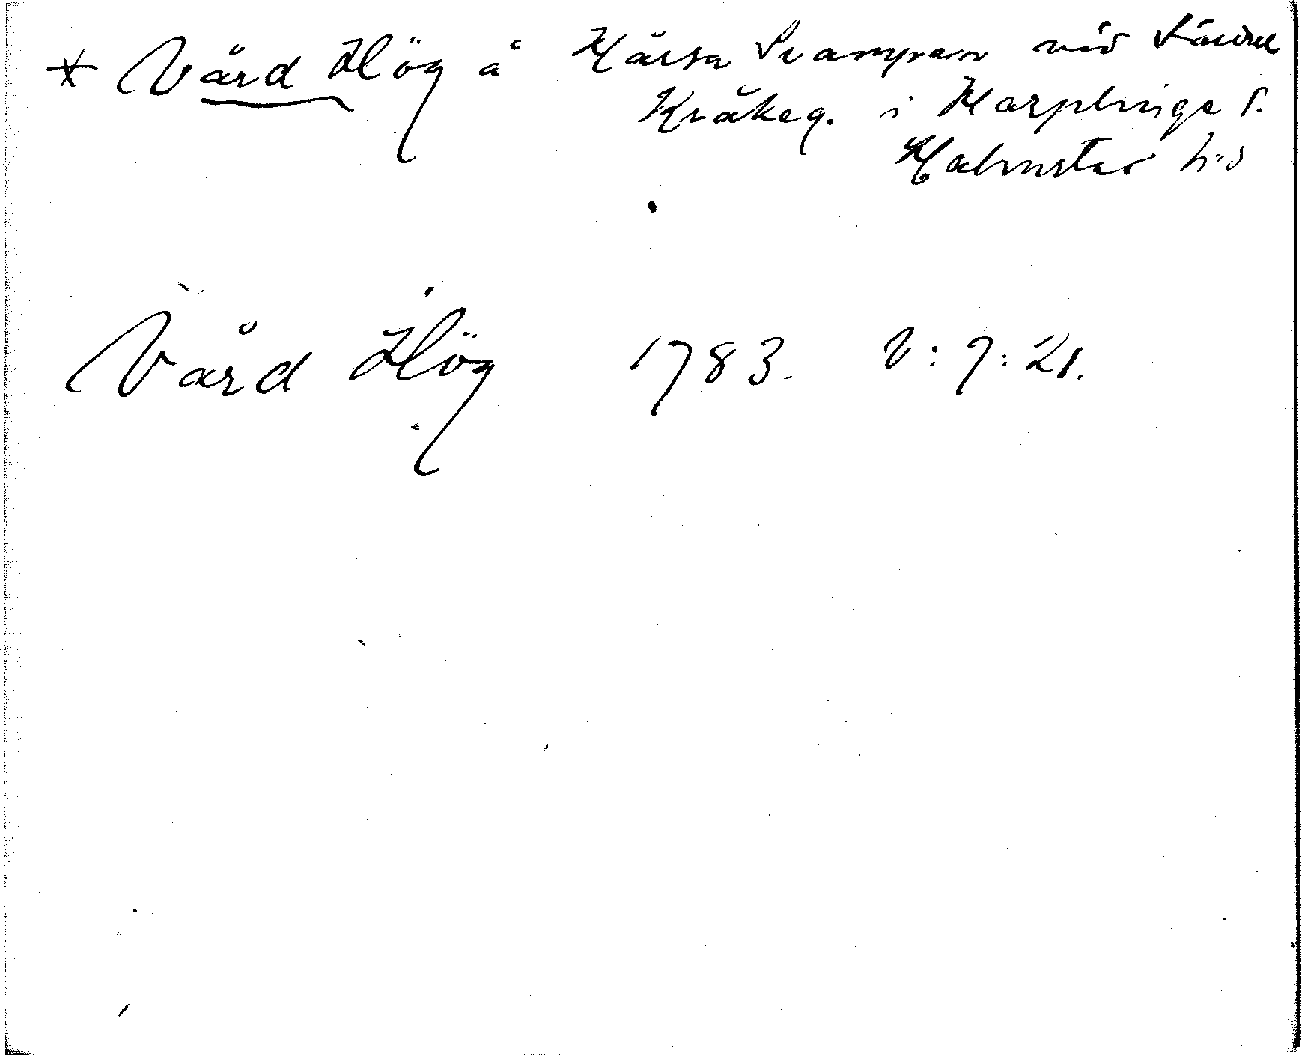 * Vård Hög å Hårsa Svampan vid Södre
Kråkeg. i Harplinge s.
Halmstad h:d
Vård Hög 1783. V:7:21.